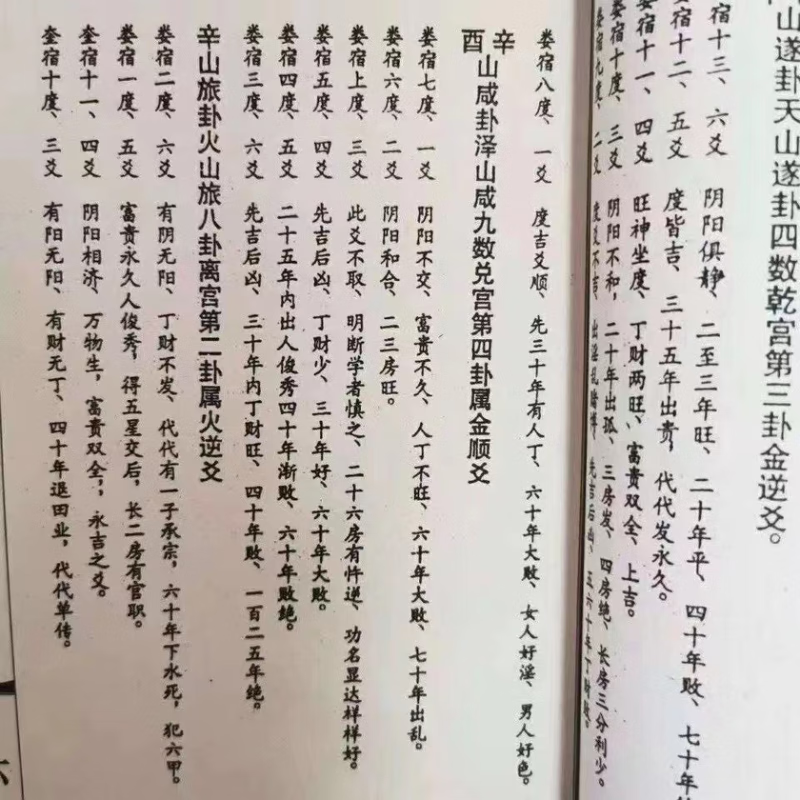 山遂卦天山遂卦四数乾宫第三卦金逆爻。
娄宿十三、六爻 阴阳俱静、二至三年旺、二十年平、四十年败、七十年
娄宿十二、五爻 度皆吉、三十五年出贵，代代发永久。
娄宿十一、四爻 旺神坐度、丁财两旺、富贵双全、上吉。
娄宿十度、三爻 阴阳不和，二十年出孤、三房发、四房绝、长房三分利少。
娄宿九度、二爻 度爻不吉、出淫乱赌博，先吉后凶、五六十年丁财败。
娄宿八度、一爻 度吉爻顺、先三十年有人丁、六十年大败、女人好淫、男人好色。
辛酉山咸卦泽山咸九数兑宫第四卦属金顺爻
娄宿七度、一爻 阴阳不交、富贵不久、人丁不旺、六十年大败、七十年出乱。
娄宿六度、二爻 阴阳和合、二三房旺。
娄宿上度、三爻 此爻不取、明断学者慎之、二十六房有忤逆、功名显达样样好。
娄宿五度、四爻 先吉后凶、丁财少、三十年好、六十年大败。
娄宿四度、五爻 二十五年内出人俊秀四十年渐败、六十年败绝。
娄宿三度、六爻 先吉后凶、三十年内丁财旺、四十年败、一百二五年绝。
辛山旅卦火山旅八卦离宫第二卦属火逆爻
娄宿二度、六爻 有阴无阳、丁财不发、代代有一子承宗，六十年下水死，犯六甲。
娄宿一度、五爻 富贵永久人俊秀，得五星交后，长二房有官职。
奎宿十一、四爻 阴阳相济、万物生，富贵双全，，永吉之爻。
奎宿十度、三爻 有阳无阳、有财无丁、四十年退田业，代代单传。
六